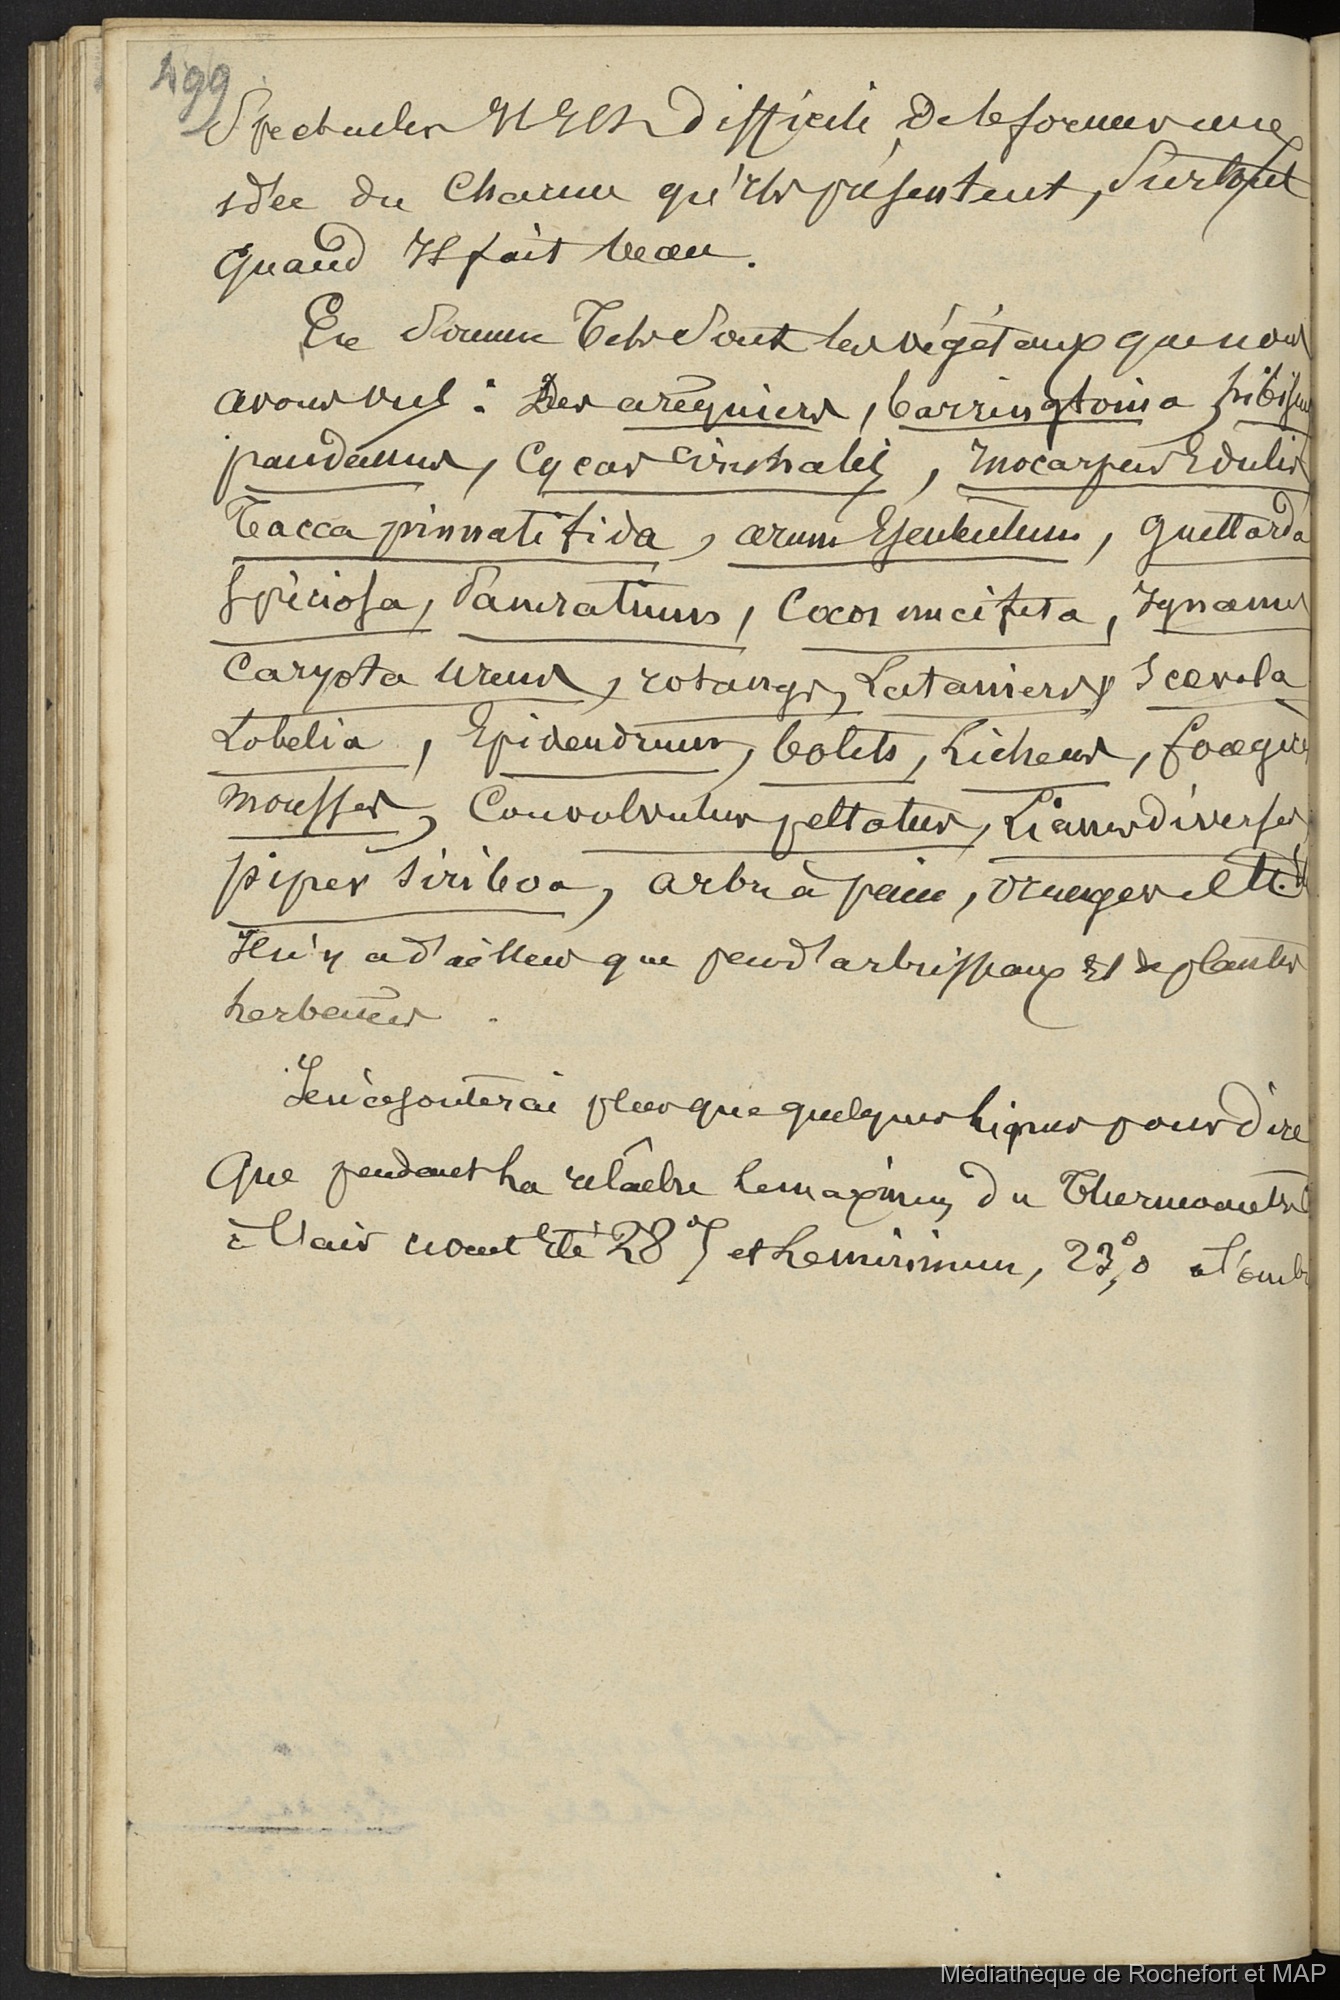 499
Spectacles Il Est difficile De se former une
idée du Charme qu'ils présentent, Surtout
Quand Il fait beau.
En Somme Tels Sont les végétaux que nous
avons vus : Des aréquiers, barringtonia, hibiscus
pandanus, Cycas circinalis, inocarpus Edulis
Tacca pinnatifida, arum Esculentum, guettarda
spéciosa, Pancratium, Cocos nucifera, Ignames
Caryota Urens, rotangs, Lataniers, Scævola
Lobelia, Epidendrum, bolets, Lichens, fougères
mousses, Convolvulus peltatus, Lianes diverses
piper siriboa, arbre à pain, oranger
Il n'y a d'ailleurs que peu d'arbrisseaux Et de plantes
herbacées.
Je n'ajouterai plus que quelques lignes pour dire
Que pendant La relâche le maximum du Thermomètre
à l'air avait Eté 28°,5 et Le minimum, 23°,8 à l'ombre
Médiathèque de Rochefort et MAP